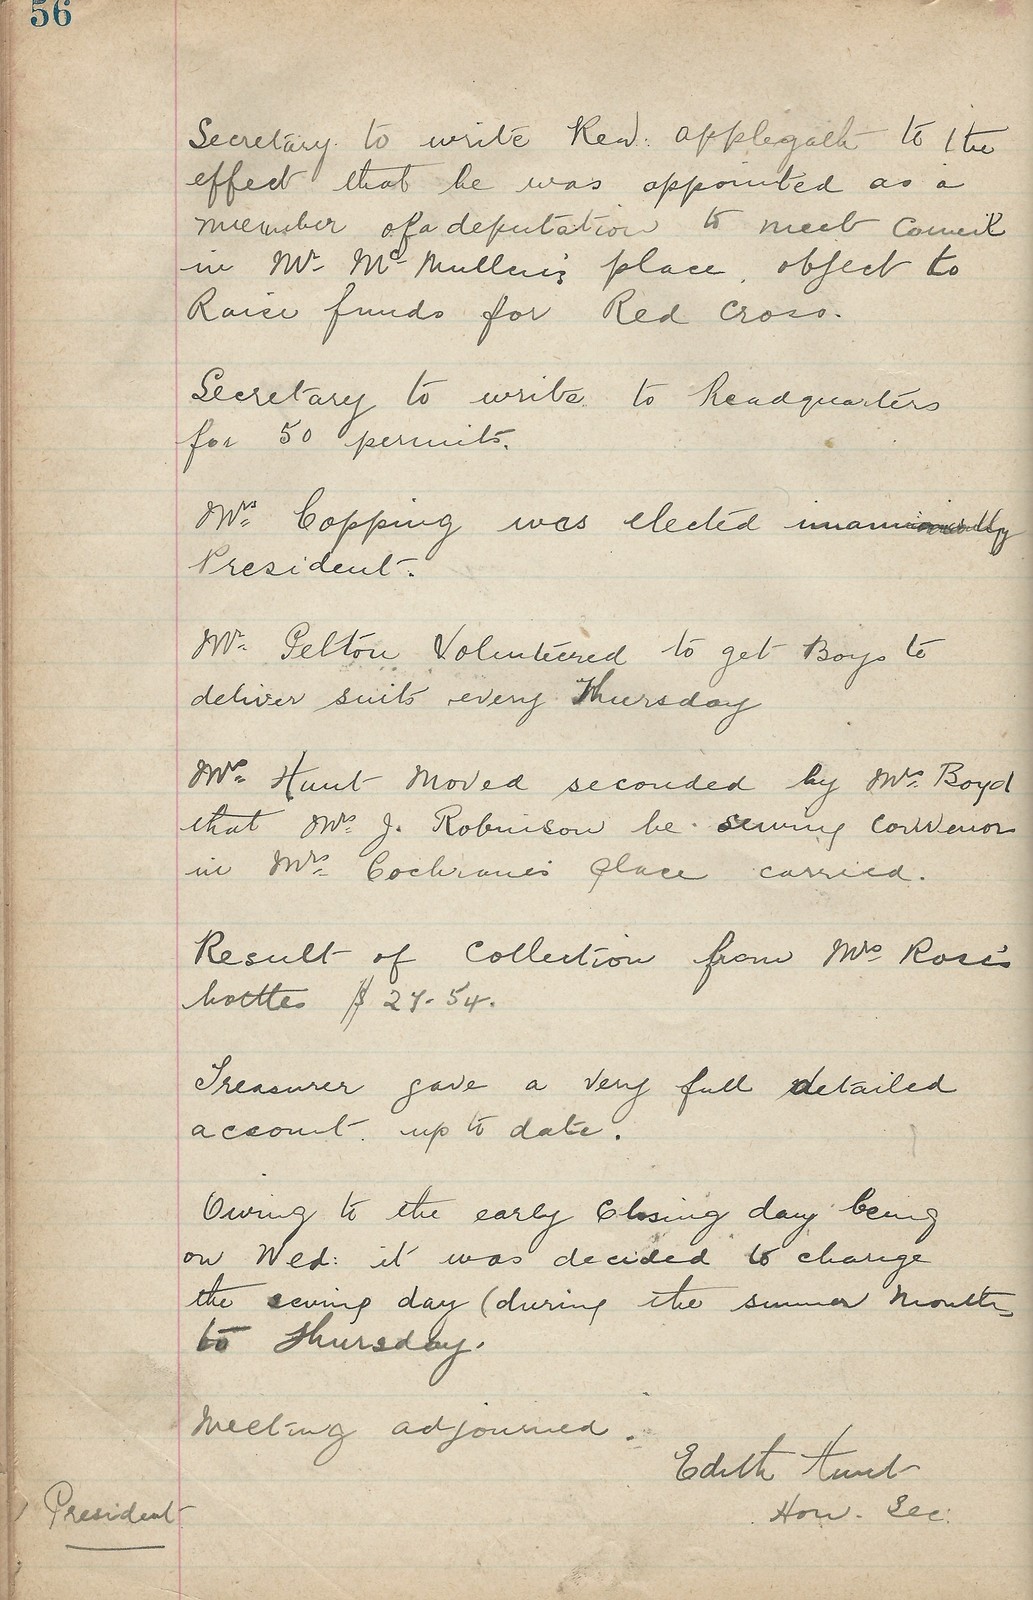 56
Secretary to write Rev. Applegath to the
effect that he was appointed as a
member of a deputation to meet Council
in Mr. McMullen's place, object to
Raise funds for Red Cross.
Secretary to write to headquarters
for 50 permits.
Mrs. Copping was elected
President.
Mr. Pelton Volunteered to get Boys to
deliver suits every Thursday
Mrs. Hunt Moved seconded by Mrs. Boyd
that Mrs. J. Robinson be sewing convenor
in Mrs. Cochrane's place carried.
Result of Collection from Mrs. Ross's
bottles $27.54.
Treasurer gave a very full detailed
account up to date.
Owing to the early Closing day being
on Wed: it was decided to change
the sewing day (during the summer Months
to Thursday.
Meeting adjourned.
Edith Hunt
Hon. Sec.
President